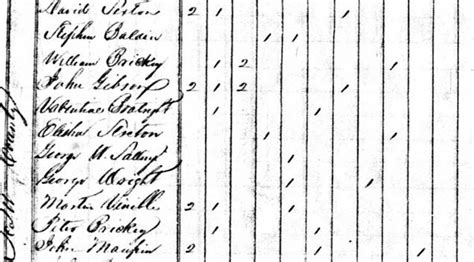 David Sexton 2 1 1
Stephen Baldin 1 1
William Brickey 1 2 1
John Gibson 2 1 2 1
Valentine 1 1
Elisha Sexton 1 1
George W. 1
George Wright 1 1
Martin 2 1 1
Peter Brickey 1 1
John Maupin 2 1 1
County